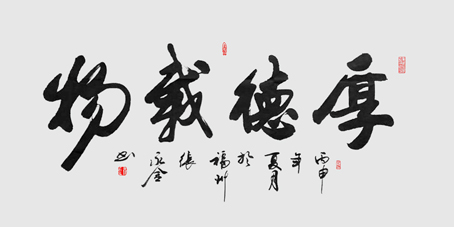 厚德載物
丙申年夏月於福州張永金书